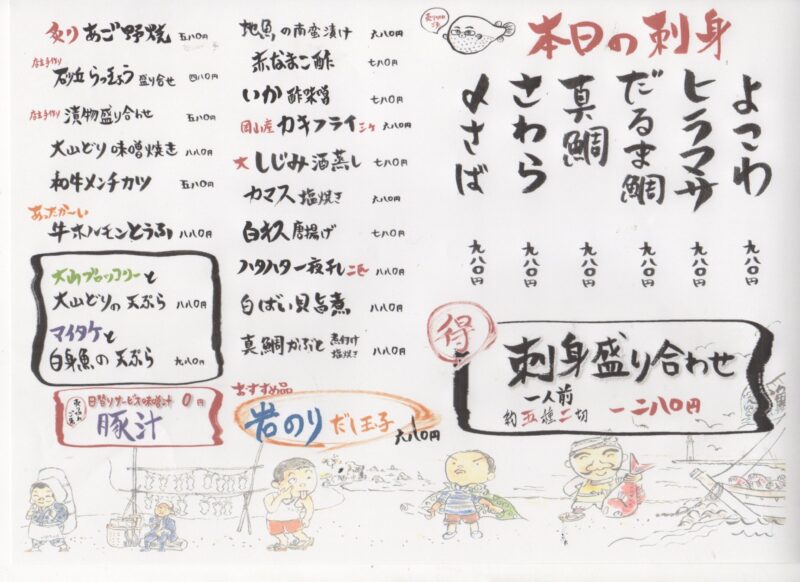 本日の刺身
よこわ 九八〇円
ヒラマサ 九八〇円
だるま鯛 九八〇円
真鯛 九八〇円
さわら 九八〇円
〆さば 九八〇円
得
刺身盛り合わせ
一人前
約五種二切 一二八〇円
地魚の南蛮漬け 六八〇円
赤なまこ酢 七八〇円
いか酢味噌 七八〇円
岡山産カキフライ二ケ 六八〇円
大しじみ酒蒸し 七八〇円
カマス塩焼き 六八〇円
白キス唐揚げ 七八〇円
ハタハタ一夜干し二匹 八八〇円
白ばい貝旨煮 八八〇円
真鯛かぶと 煮付け 塩焼き 八八〇円
おすすめ品
岩のりだし玉子 六八〇円
炙りあご野焼 五八〇円
店主手作り
砂丘らっきょう盛り合せ 四八〇円
店主手作り
漬物盛り合わせ 五八〇円
大山どり味噌焼き 八八〇円
和牛メンチカツ 五八〇円
あったか〜い
牛ホルモンとうふ 八八〇円
大山ブロッコリーと
大山どりの天ぷら 八八〇円
マイタケと
白身魚の天ぷら 九八〇円
日替りサービス味噌汁 0円
豚汁